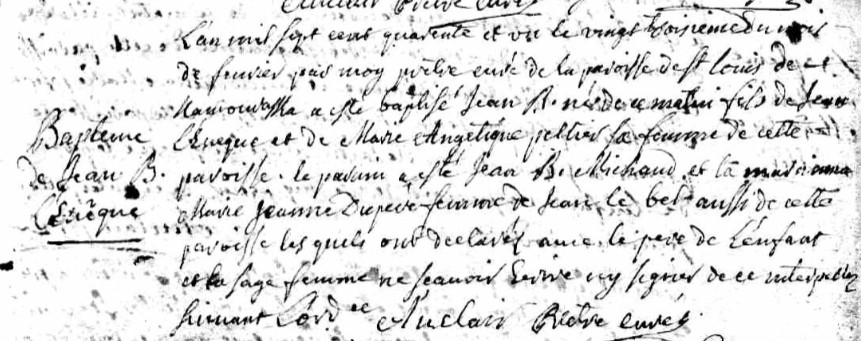 Auclair Prêtre curé
L'an mil sept cens quarente et un le vingt troisieme du mois
de fevrier par moy prêtre curé de la paroisse de St louis de
Kamouraska a esté baptisé Jean B. né de ce matin fils de Jean
Bapteme
L'Eveque et de Marie Angelique peltier sa femme de cette
de Jean B.
paroisse. le parain a esté Jean B. Michaud et la maraine
L'Evêque
Marie Jeanne Duperé femme de Jean le bel aussi de cette
paroisse lesquels ont declarés avec le pere de L'enfant
et la sage femme ne scavoir Ecrire ny signer de ce interpellez
suivant L'ord.ce Auclair Prêtre curé.